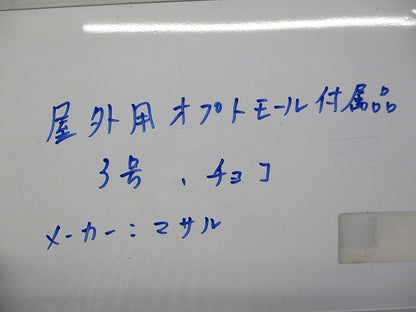 屋外用オプトモール付属品
3号、チョコ
メーカー:マサル